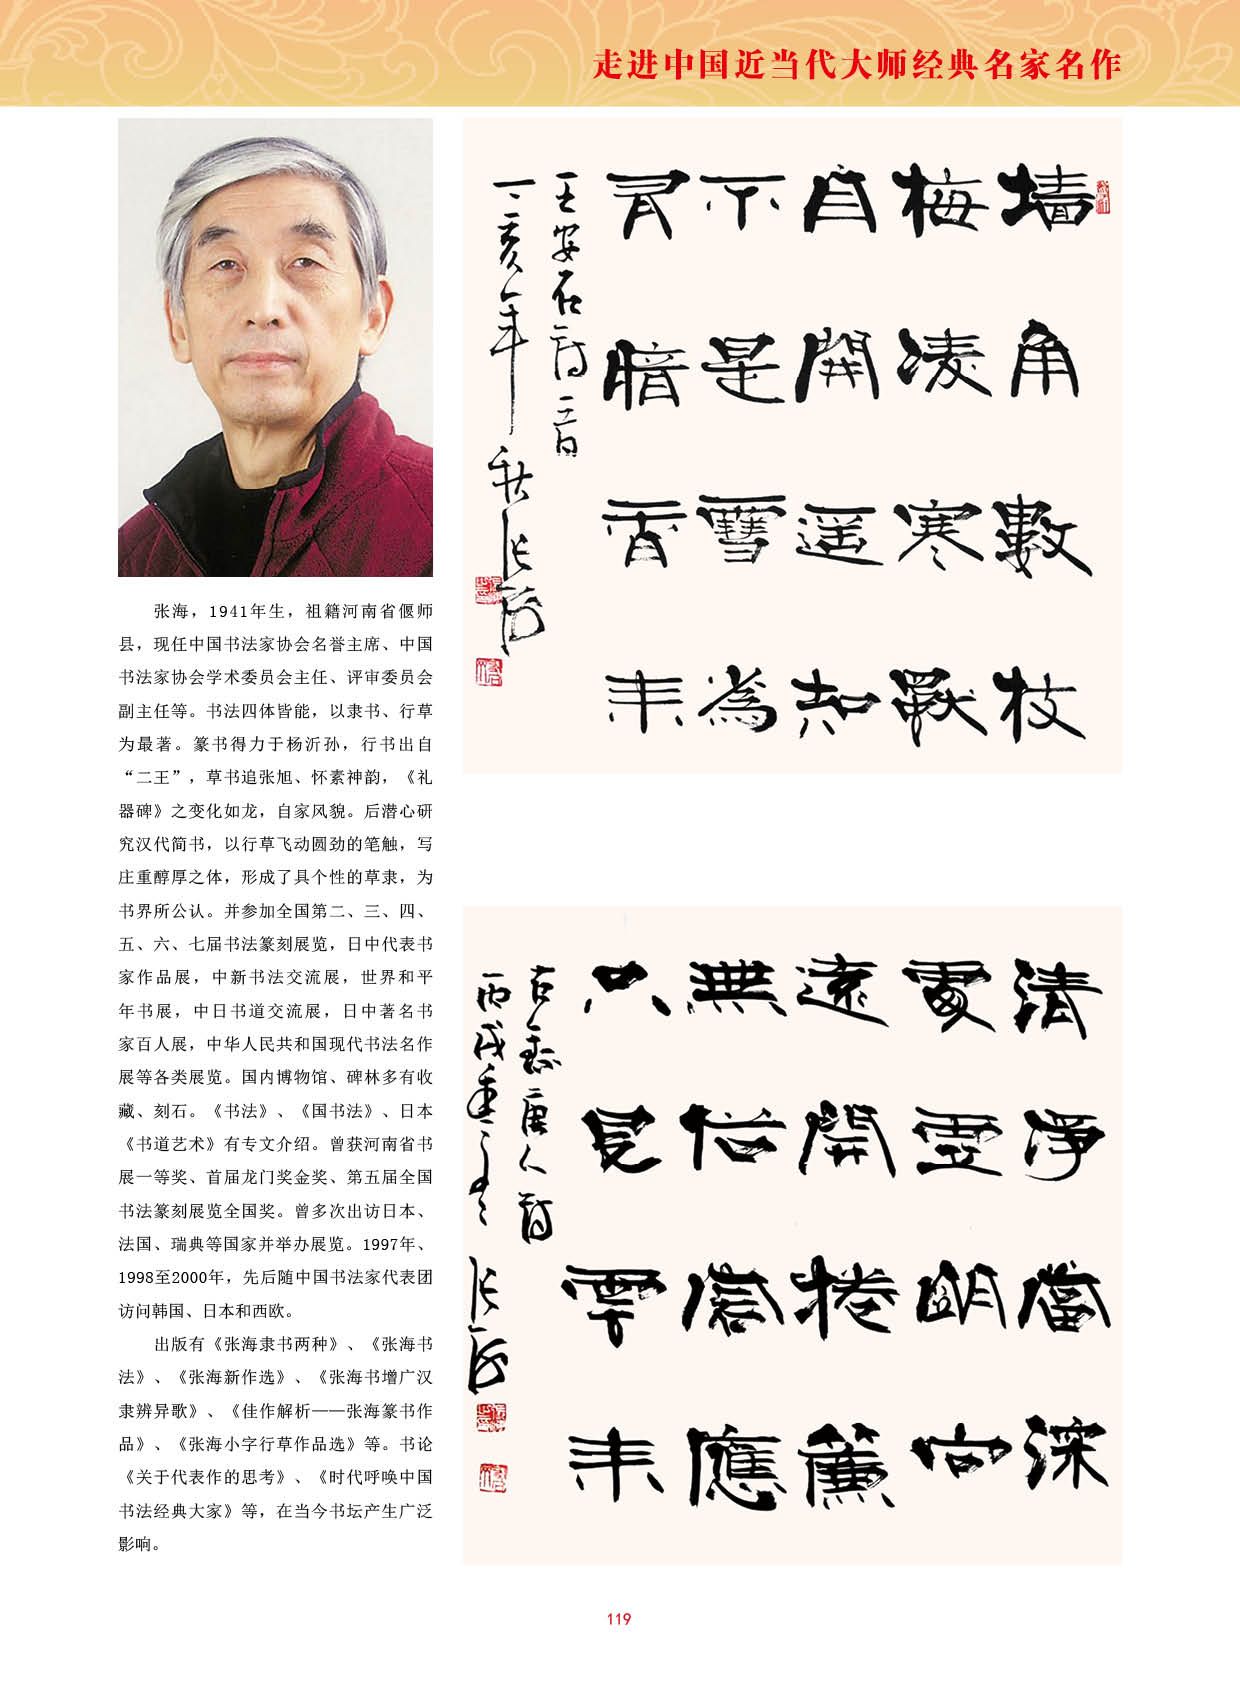 走进中国近当代大师经典名家名作
墙角數枝
梅凌寒獨
自開遥知
不是雪為
有暗香来
王安石诗一首
丁亥年秋张海
张海，1941年生，祖籍河南省偃师
县，现任中国书法家协会名誉主席、中国
书法家协会学术委员会主任、评审委员会
副主任等。书法四体皆能，以隶书、行草
为最著。篆书得力于杨沂孙，行书出自
“二王”，草书追张旭、怀素神韵，《礼
器碑》之变化如龙，自家风貌。后潜心研
究汉代简书，以行草飞动圆劲的笔触，写
庄重醇厚之体，形成了具个性的草隶，为
书界所公认。并参加全国第二、三、四、
五、六、七届书法篆刻展览，日中代表书
家作品展，中新书法交流展，世界和平
年书展，中日书道交流展，日中著名书
家百人展，中华人民共和国现代书法名作
展等各类展览。国内博物馆、碑林多有收
藏、刻石。《书法》、《国书法》、日本
《书道艺术》有专文介绍。曾获河南省书
展一等奖、首届龙门奖金奖、第五届全国
书法篆刻展览全国奖。曾多次出访日本、
法国、瑞典等国家并举办展览。1997年、
1998至2000年，先后随中国书法家代表团
访问韩国、日本和西欧。
出版有《张海隶书两种》、《张海书
法》、《张海新作选》、《张海书增广汉
隶辨异歌》、《佳作解析——张海篆书作
品》、《张海小字行草作品选》等。书论
《关于代表作的思考》、《时代呼唤中国
书法经典大家》等，在当今书坛产生广泛
影响。
清淨當深
處虛明向
遠開捲簾
無俗客應
只見雲来
唐人诗
丙戌年 张海
119